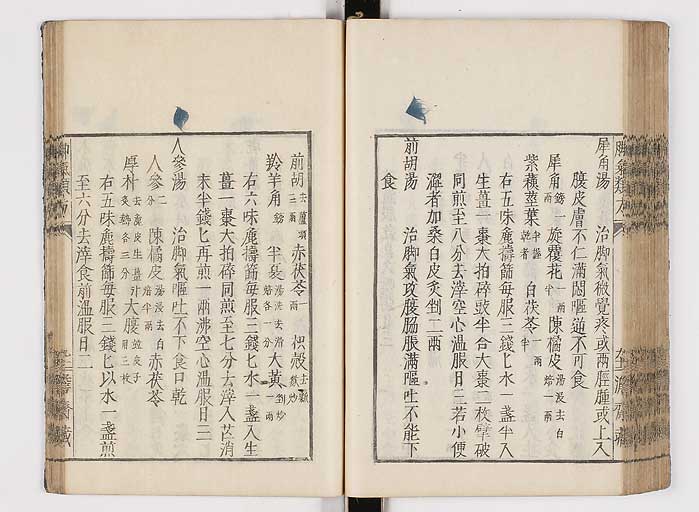 犀角湯 治脚氣微覺疼或兩脛腫或上入
腹皮膚不仁滿悶嘔逆不可食
犀角 鎊一兩 旋覆花 一兩半 陳橘皮 湯浸去白焙一兩
紫蘇莖葉 一兩半 白茯苓 一兩半
右五味麄擣篩每服三錢匕水一盞半入
生薑一棗大拍碎豉半合大棗二枚擘破
同煎至八分去滓空心溫服日三若小便
澀者加桑白皮炙剉二兩
前胡湯 治脚氣攻腹脇脹滿嘔吐不能下
食
前胡 去蘆頭三兩 赤茯苓 一兩 枳殼 去瓤麩炒
羚羊角 鎊 半夏 湯洗去滑焙各一分 大黃 剉炒一兩
右六味麄擣篩每服三錢匕水一盞入生
薑一棗大拍碎同煎至七分去滓入芒消
末半錢匕再煎一兩沸空心溫服日二
人參湯 治脚氣嘔吐不下食口乾
人參 二分 陳橘皮 湯浸去白焙半兩 赤茯苓
厚朴 去麄皮生薑汁炙轉各三分 大腹 三枚
右五味麄擣篩每服三錢匕以水一盞煎
至六分去滓食前溫服日二